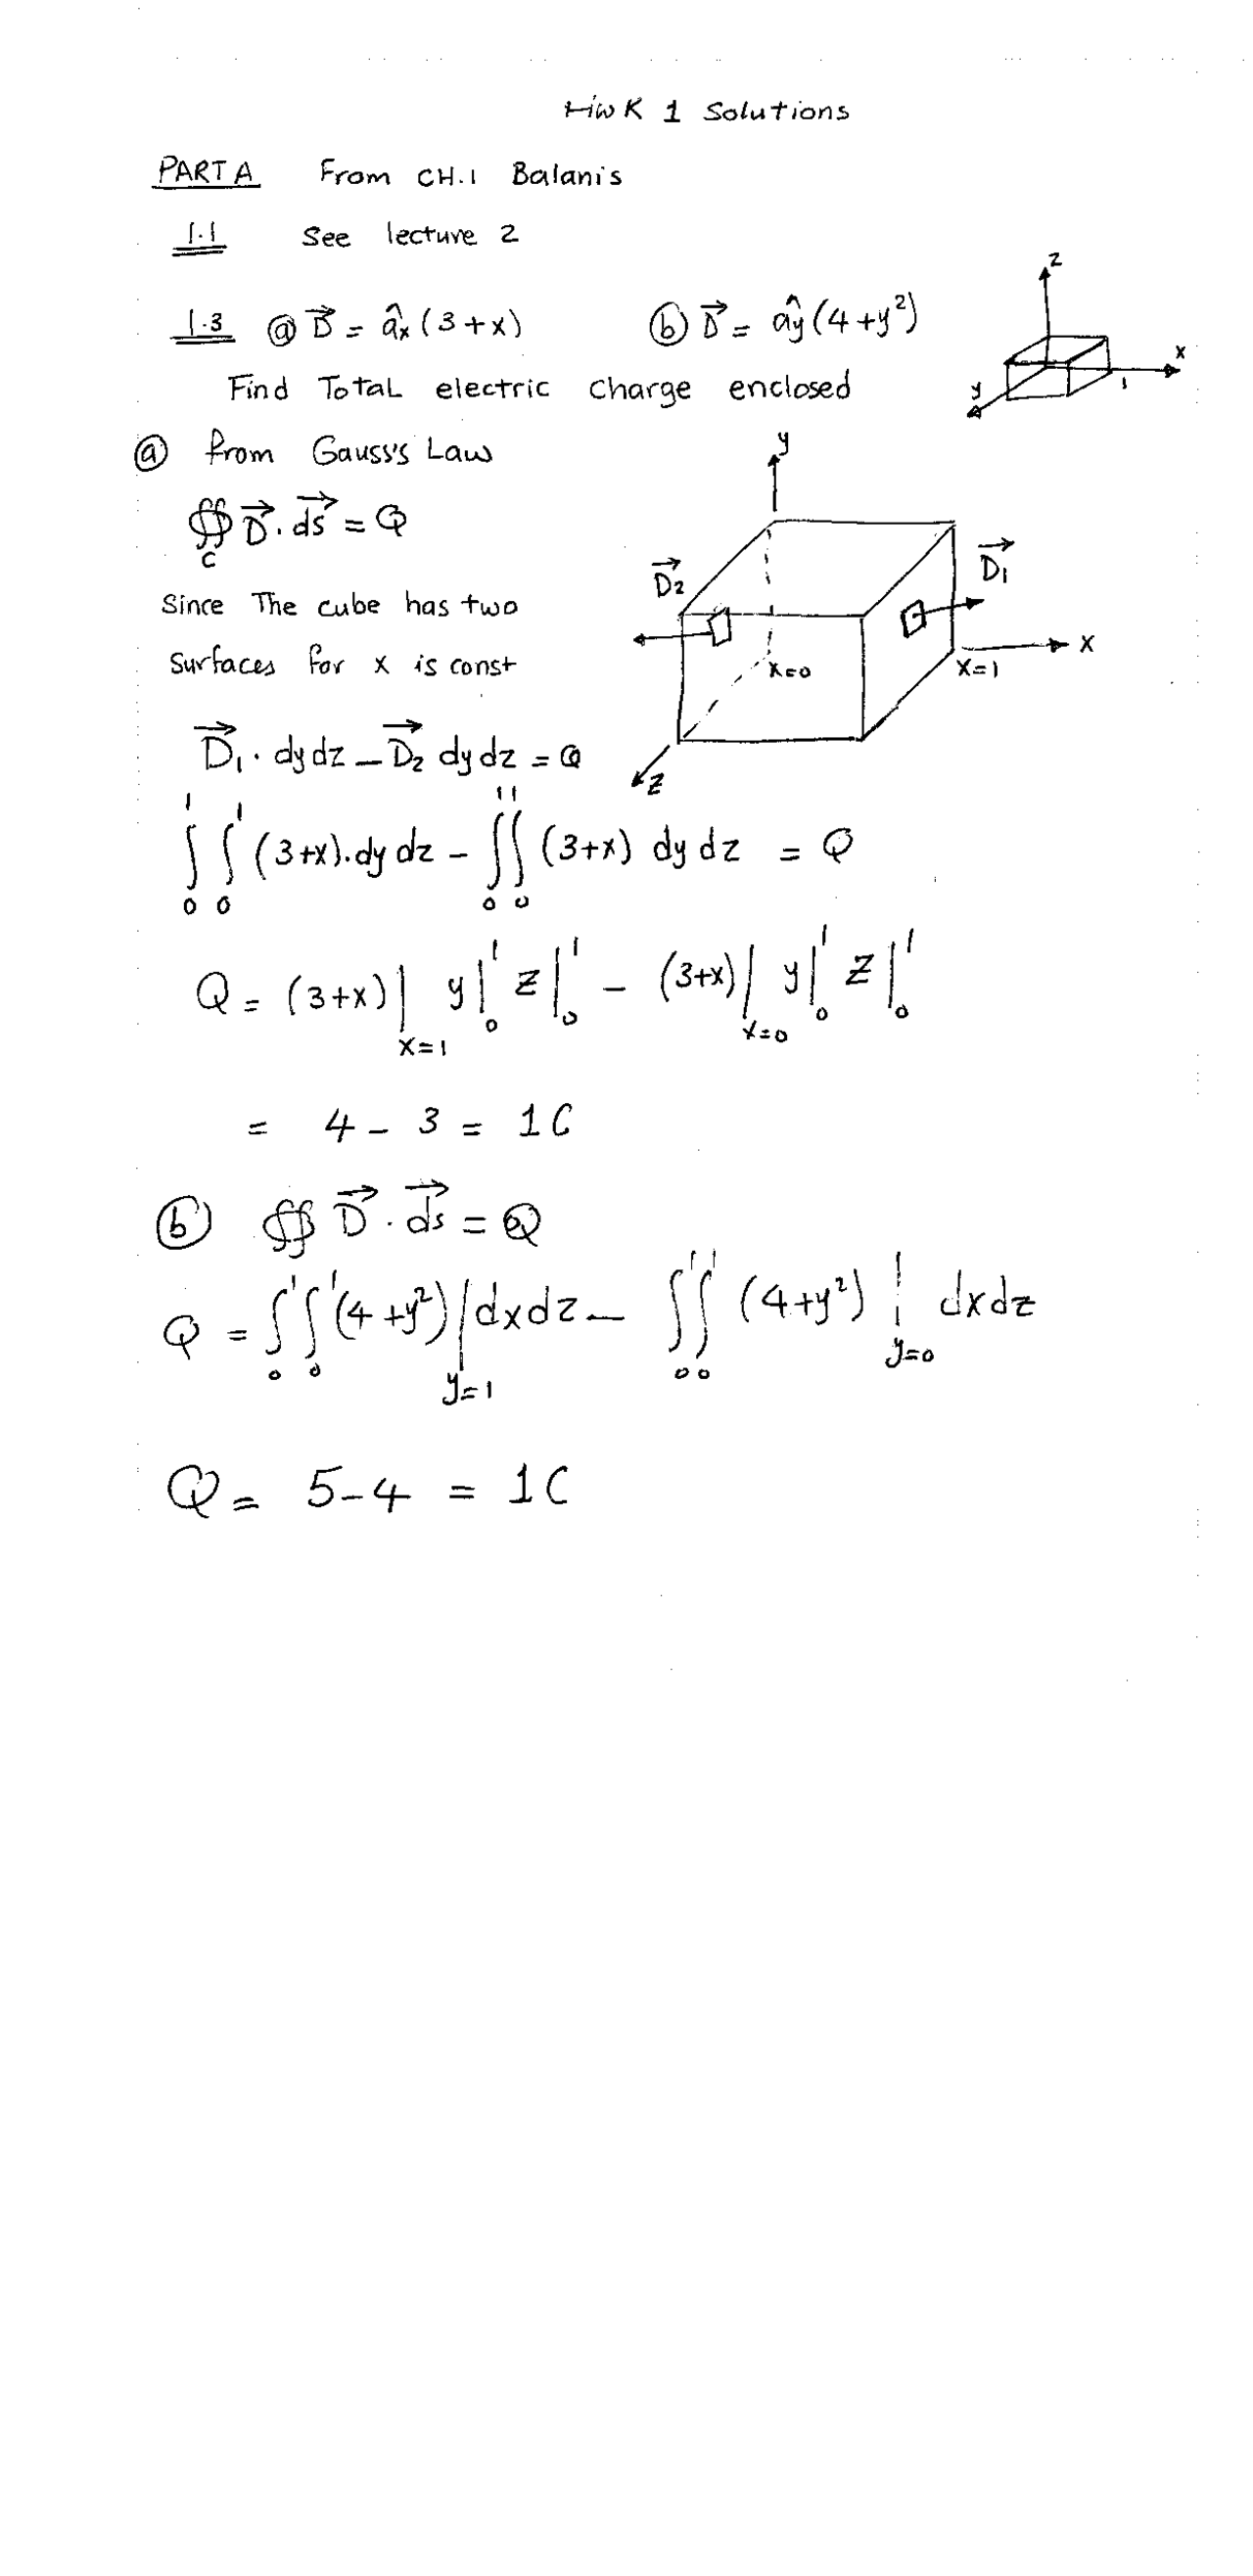 HWK 1 Solutions
PART A From CH.1 Balanis
1.1 See lecture 2
z
1.3 ⓐ D⃗ = âx (3+x) ⓑ D⃗ = ây (4+y²)
x
y
1
Find Total electric charge enclosed
ⓐ from Gauss's Law
y
∯ D⃗ . ds⃗ = Q
C
D⃗₂ D⃗₁
Since The cube has two
Surfaces for x is const
x=0 x=1 x
D⃗₁ . dydz – D⃗₂ dydz = Q
z
∫₀¹ ∫₀¹ (3+x).dy dz – ∫₀¹ ∫₀¹ (3+x) dy dz = Q
Q = (3+x)|x=1 y|₀¹ z|₀¹ – (3+x)|x=0 y|₀¹ z|₀¹
= 4 – 3 = 1C
ⓑ ∯ D⃗ . ds⃗ = Q
Q = ∫₀¹ ∫₀¹ (4+y²)|y=1 dxdz – ∫₀¹ ∫₀¹ (4+y²)|y=0 dxdz
Q = 5–4 = 1C